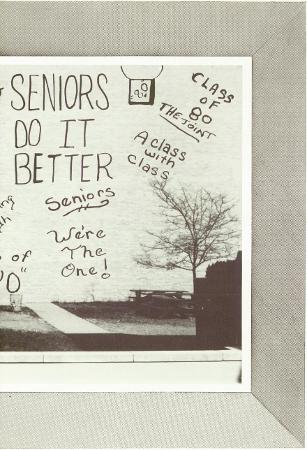 SENIORS
DO IT
BETTER
CLASS
OF
80
THE JOINT
A class
with
class
Seniors
We're
The
One!
of